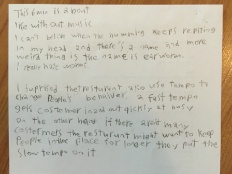 This
about
like without music
I can't belive when the humming keeps repiting
in my head and there's a name and more
weird thing is the name is earworm.
I hate worms.
I suprised the resturant also use tempo to
change people's behavior. a fast tempo
gets costomer in and out quickly at busy
on the hour
if there aren't many
costermers the resturunt might want to keep
People in the place for longer they put the
slow tempo on it